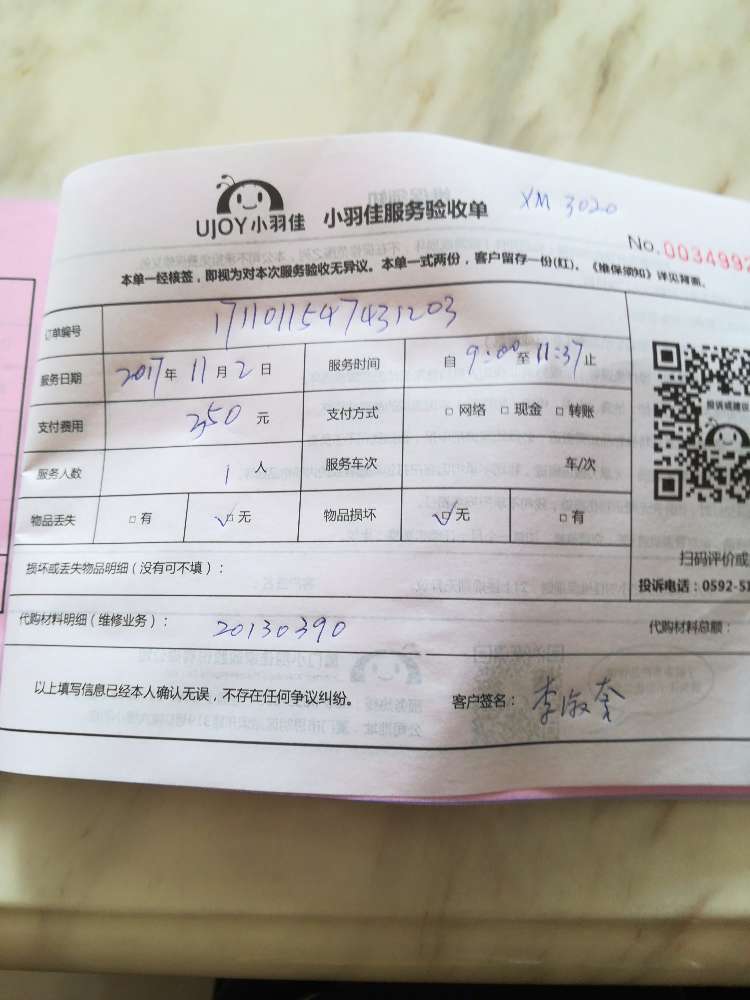 UJOY小羽佳 小羽佳服务验收单 XM 3020
No.0034992
本单一经核签，即视为对本次服务验收无异议。本单一式两份，客户留存一份(红)。《维保须知》详见背面。
订单编号 1711011547431203
服务日期 2017年 11月 2日 服务时间 自 9:00 至 11:37止
支付费用 350 元 支付方式 □网络 □现金 □转账
投诉或建议
服务人数 1 人 服务车次 车/次
物品丢失 □有 ☑无 物品损坏 ☑无 □有
扫码评价或
损坏或丢失物品明细（没有可不填）：
投诉电话：0592-51
代购材料明细（维修业务）： 20130390 代购材料总额：
以上填写信息已经本人确认无误，不存在任何争议纠纷。 客户签名：李淑